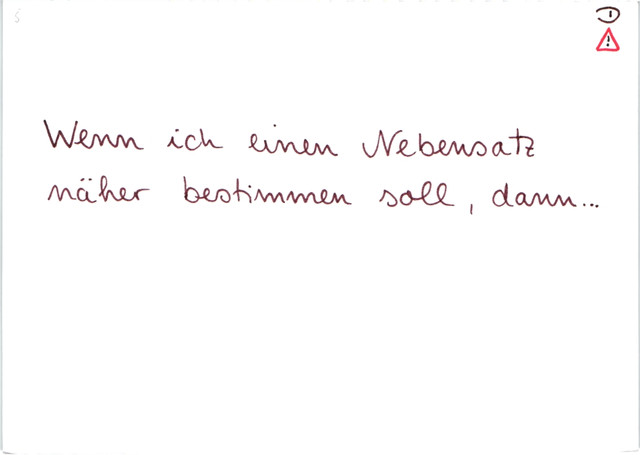 Wenn ich einen Nebensatz
näher bestimmen soll, dann...